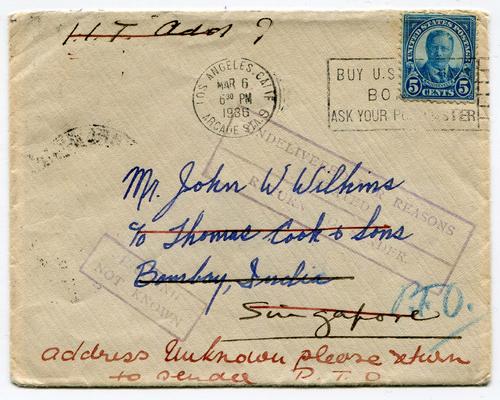 H.T. Ados ?
LOS ANGELES, CALIF
MAR 6
6 30 PM
1936
ARCADE STA.
BUY U.S.
BO
ASK YOUR PO STER
UNITED STATES POSTAGE
5 5
CENTS
UNDELIVERED REASONS
STATED
RETURN SENDER
Mr. John W. Wilkins
c/o Thomas Cook & Sons
Bombay, India
Singapore
NOT KNOWN
address Unknown please return
to sender P.T.O